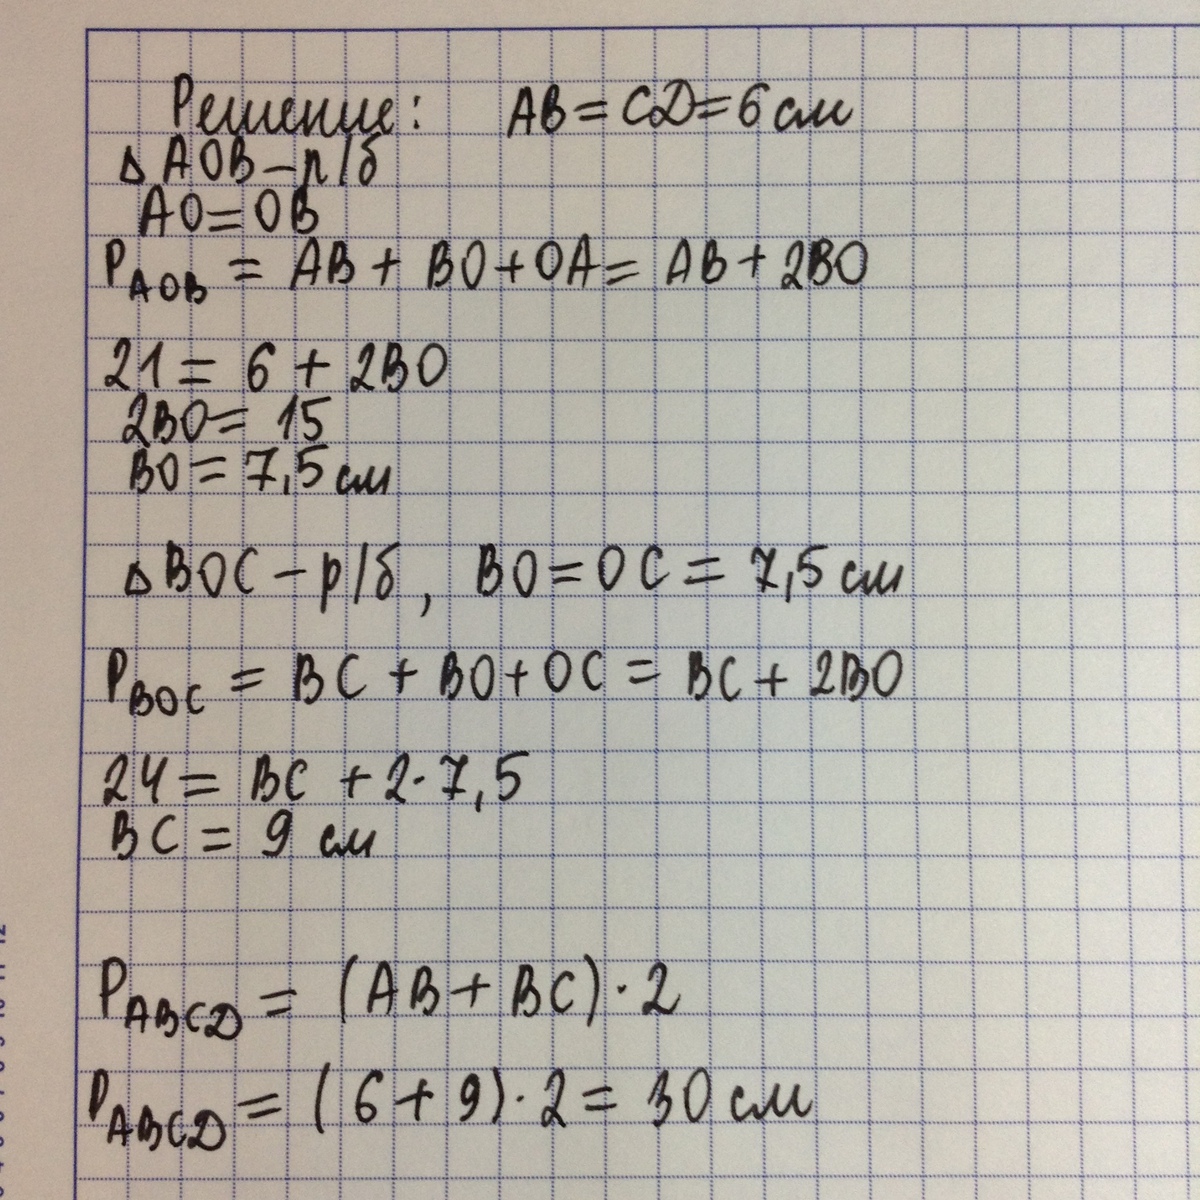 Решение: AB = CD = 6 см
∆ AOB – р/б
AO = OB
P AOB = AB + BO + OA = AB + 2BO
21 = 6 + 2BO
2BO = 15
BO = 7,5 см
∆ BOC – р/б, BO = OC = 7,5 см
P BOC = BC + BO + OC = BC + 2BO
24 = BC + 2·7,5
BC = 9 см
P ABCD = (AB + BC)·2
P ABCD = (6 + 9)·2 = 30 см